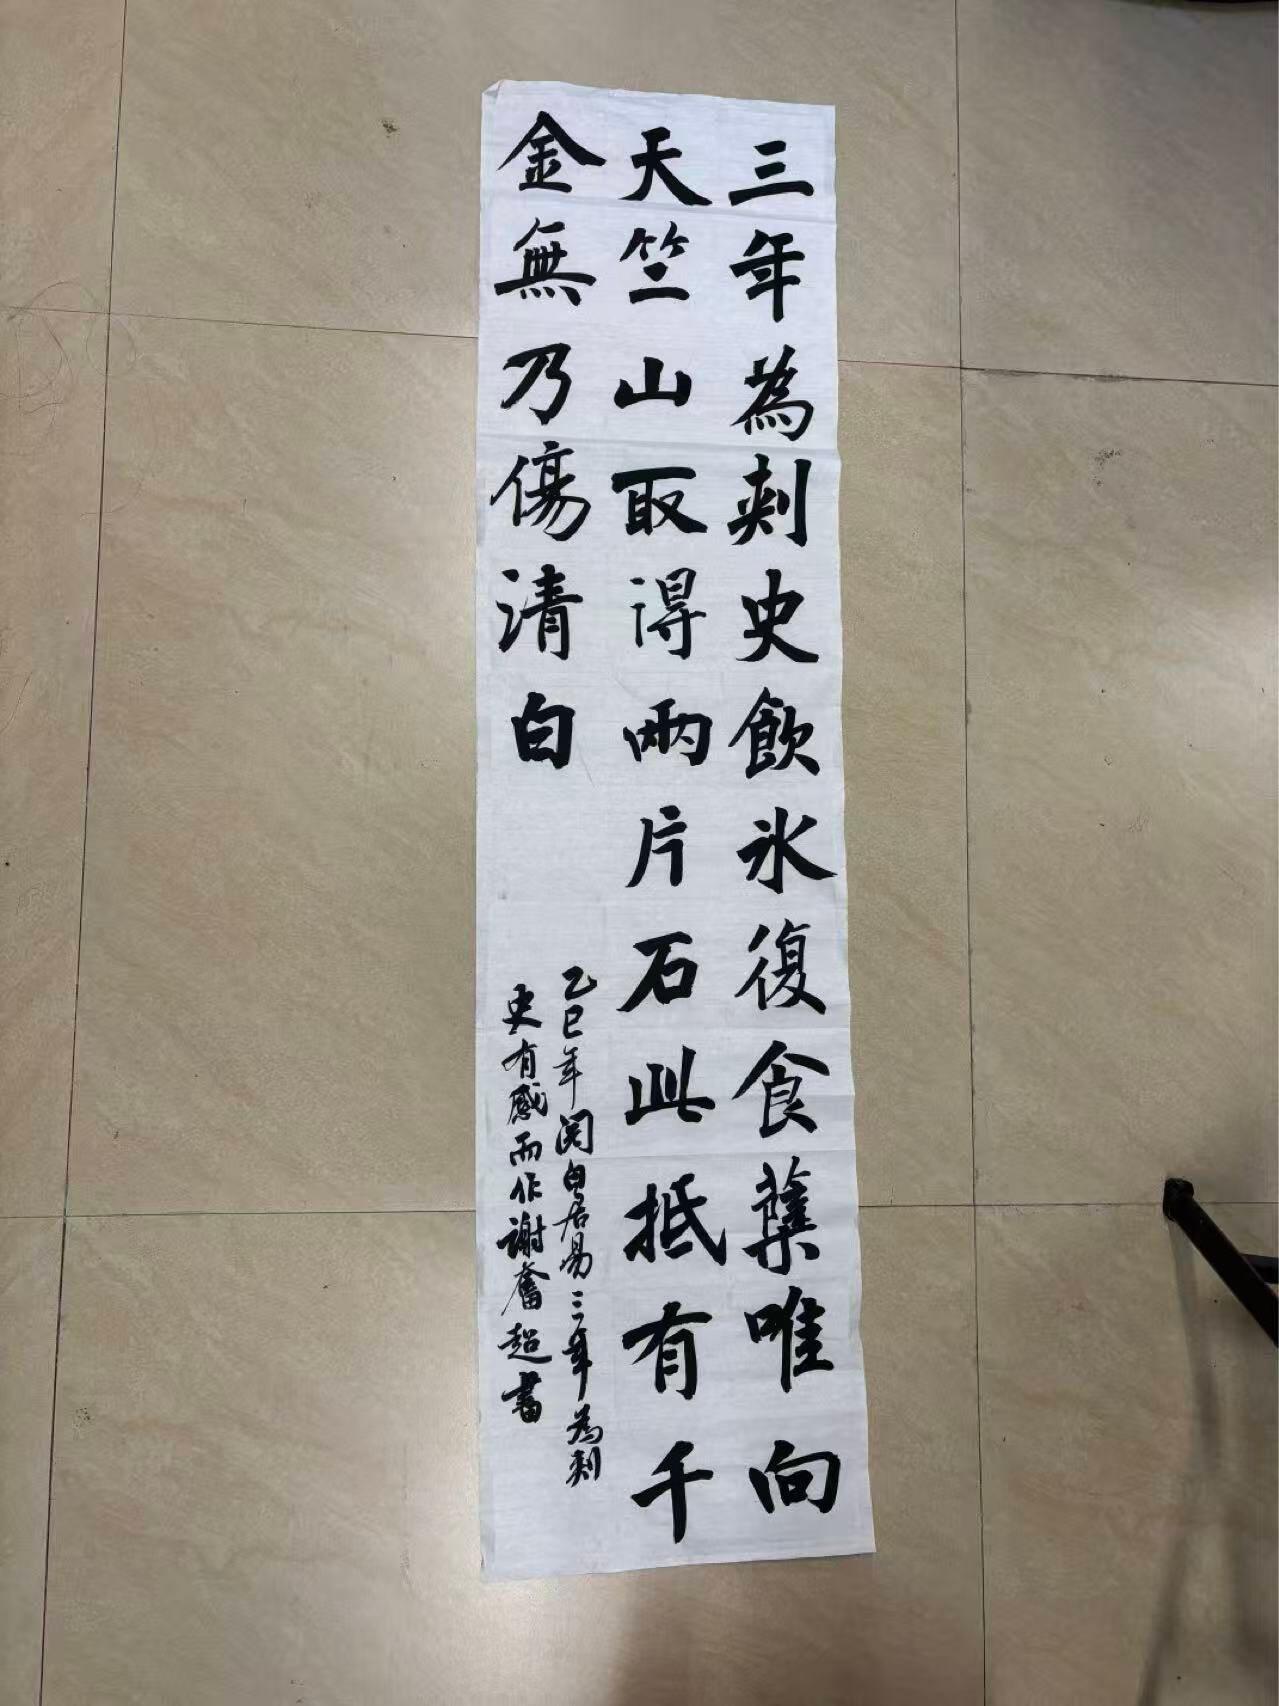 三年為刺史飲氷復食蘗唯向
天竺山取得兩片石此抵有千
金無乃傷清白
乙巳年閱白居易三年為刺
史有感而作謝奮超書